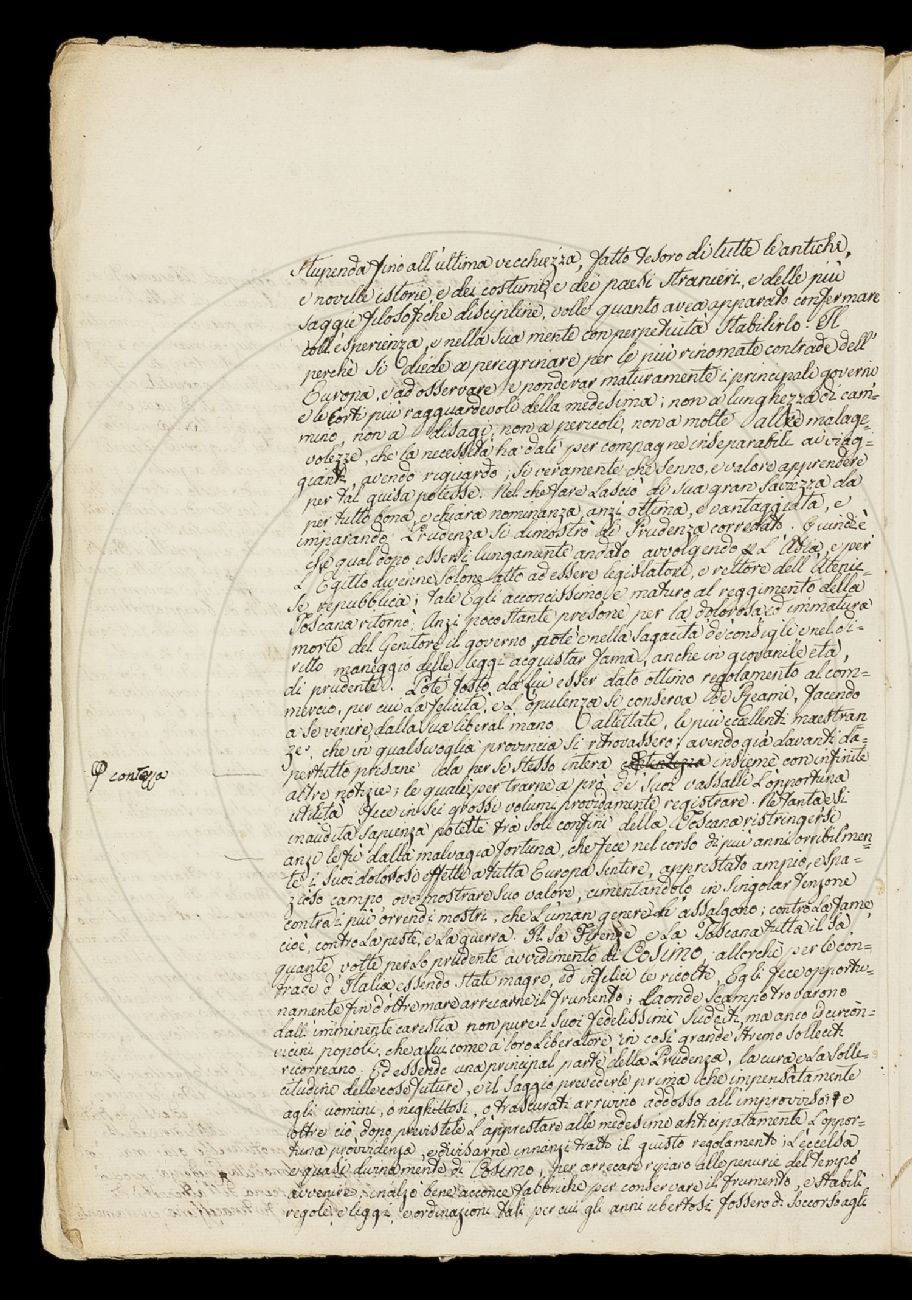 stupenda fino all'ultima vecchiezza, fatto tesoro di tutte le antiche,
e novelle istorie, e dei costumi, e dei paesi stranieri, e delle più
saggie filosofiche discipline, volle quanto avea apparato confermare
coll'esperienza, e nella sua mente con perpetuità stabilirlo. Il
perchè si diede a peregrinare per le più rinomate contrade dell'
Europa, e ad osservare, e ponderar maturamente i principali governi
e le Corti più ragguardevoli della medesima; non a lunghezza di cam-
mino, non a disagi, non a pericoli, non a molte altre malage-
volezze, che la necessità ha date per compagne inseparabili ai viag-
gianti, avendo riguardo; si veramente che senno, e valore apprendere
per tal guisa potesse. Nel che fare lasciò di sua gran saviezza da
per tutto bona, e chiara nominanza, anzi ottima, e vantaggiata, e
imparando Prudenza si dimostrò di Prudenza corredato. Quindi è
che qual dopo essersi lungamente andato avvolgendo per l'Asia, e per
l'Egitto divenne Solone atto ad essere legislatore, e rettore dell'Atenie-
se repubblica; tale Egli acconcissimo, e maturo al reggimento della
Toscana ritornò. Anzi nocostante presone per la dolorosa, ed immatura
morte del Genitore il governo, potè e nella sagacità de' consigli e nel di-
ritto maneggio delle leggi acquistar fama, anche in giovanile età,
di prudente. Potè tosto da lui esser dato ottimo regolamento al com-
mercio, per cui la felicità, e l'opulenza si conserva de' Reami, facendo
a se venire dalla sua liberal mano allettate, le più eccellenti maestran
ze, che in qualsivoglia provincia si ritrovassero; avendo già davanti da-
pertutto presane da per se stesso intera insieme con infinite
₵ contezza
altre notizie; le quali per trarne a prò de' suoi vassalli l'opportuna
utilità fece in sei grossi volumi providamente registrare. Ne tanta e sì
inaudita sapienza potette tra soli confini della Toscana ristringersi
anzi le fù dalla malvagia fortuna, che fece nel corso di più anni orribilmen-
te i suoi dolorosi effetti a tutta Europa sentire, apprestato ampio, e spa-
zioso campo, ove mostrare suo valore, cimentandolo in singolar tenzone
contra i più orrendi mostri, che l'uman genere di assalgono; contro la fame,
cioè, contro la peste, e la guerra. Il sà Firenze, e la Toscana tutta il sà,
quante volte per lo prudente avvedimento di Cosimo, allorchè per le con-
trade d'Italia essendo state magre, ed infelici le ricolte, Egli fece opportu-
namente fin d'oltre mare arrecarne il frumento; laonde scampo trovarono
dall'imminente carestia non pure i suoi fedelissimi sudditi, ma anco i circon-
vicini popoli, che a lui come a loro liberatore in così grande stremo solleciti
ricorreano. Ed essendo una principal parte della Prudenza, la cura, e la solle-
citudine delle cose future, e il saggio provederle prima, che impensatamente
agli uomini, o neghittosi, o trascurati arrivino addosso all'improvviso; e
oltre ciò, dopo previstele l'apprestare alle medesime anticipatamente l'oppor-
tuna providenza, e divisarne innanzi tratto il giusto regolamento; l'eccelsa
e quasi divina mente di Cosimo, per arrecare riparo alle penurie del tempo
avvenire, inalzò bene acconce fabbriche per conservare il frumento, e stabilì
regole, e leggi, e ordinazioni tali, per cui gli anni ubertosi fossero di soccorso agli